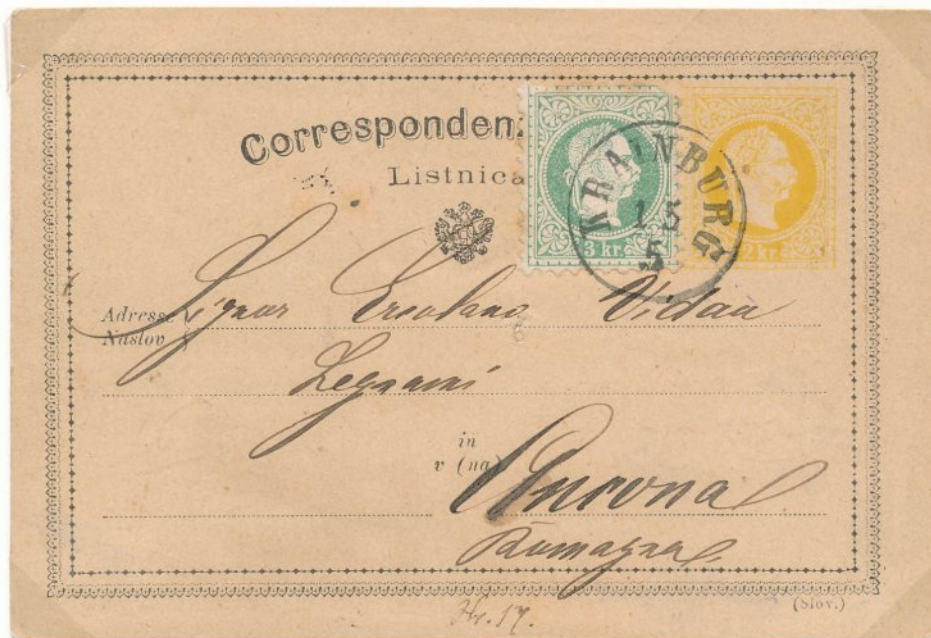 Corresponden
Listnica
3 kr.
2 kr.
KRAINBURG
5
Adresse
Naslov
Signor Ercolano
Legnami
in
v (na)
Ancona
Romagna
(Slov.)